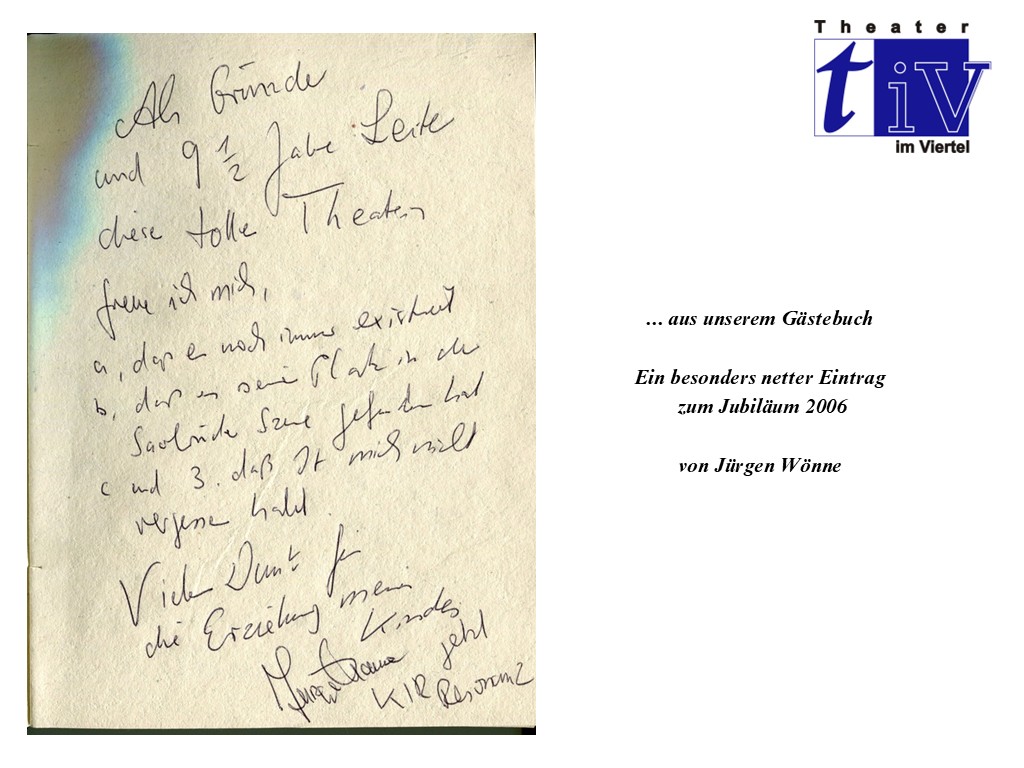 Als Gründer
und 9 1/2 Jahre Leiter
dieses tolle Theaters
freue ich mich,
a, daß es noch immer existiert
b, daß es seinen Platz in der
Saarbrücker Szene gefunden hat
c und 3. daß Ihr mich nicht
vergessen habt.
Vielen Dank für
die Erziehung meines
Kindes
Jürgen Wönne jetzt
KIR Resonanz
Theater
tiV
im Viertel
... aus unserem Gästebuch
Ein besonders netter Eintrag
zum Jubiläum 2006
von Jürgen Wönne